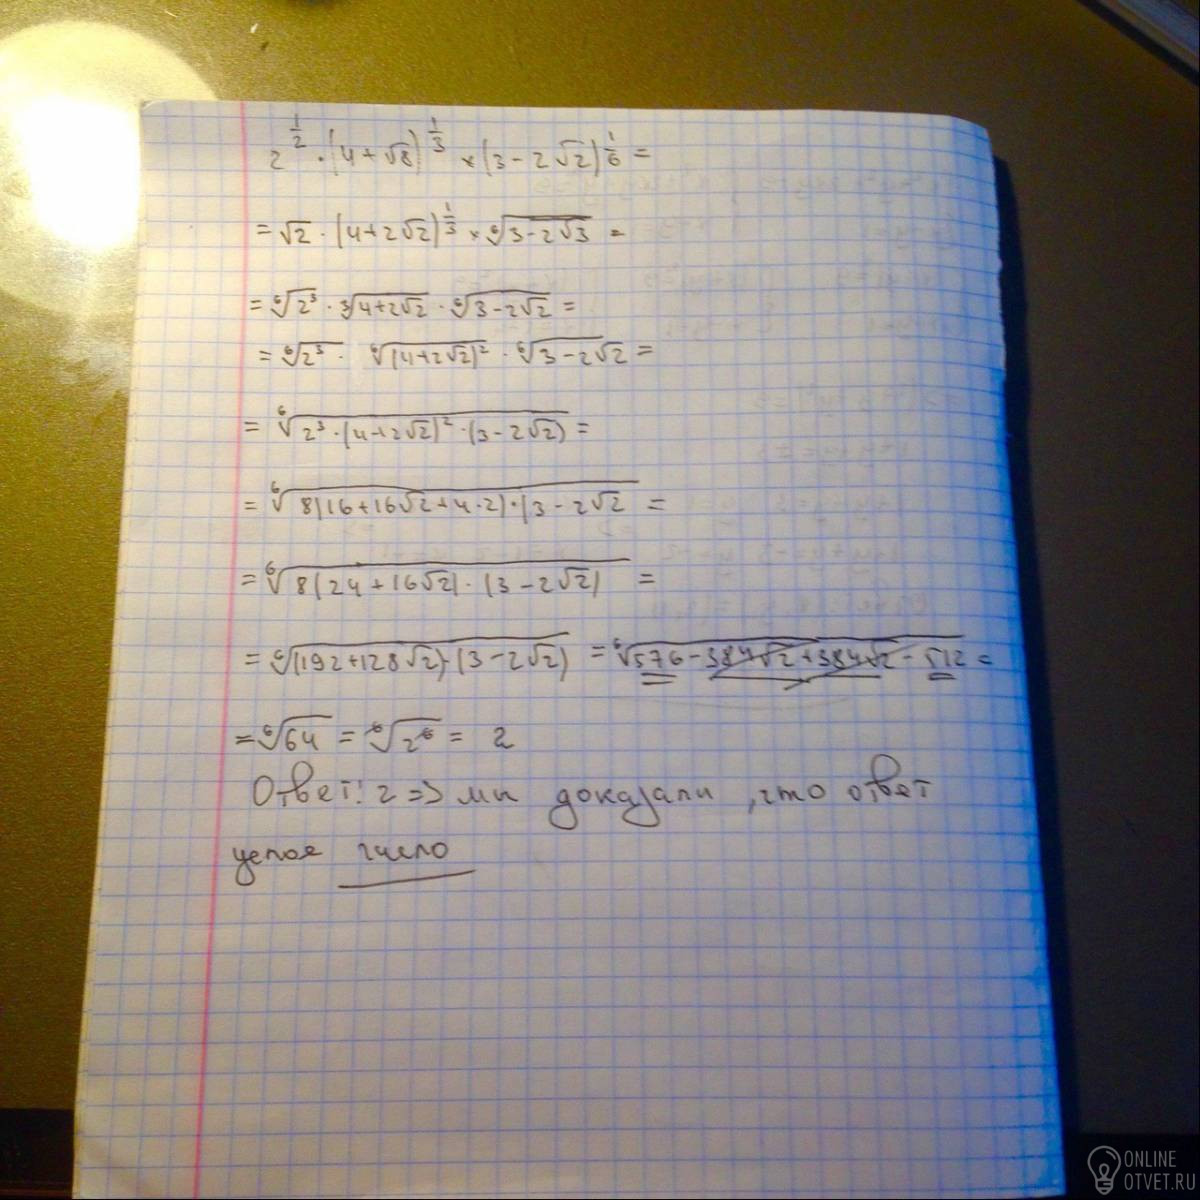 2^{1/2} · (4+√8)^{1/3} × (3-2√2)^{1/6} =
= √2 · (4+2√2)^{1/3} × ⁶√(3-2√3) =
= ⁶√(2³) · ³√(4+2√2) · ⁶√(3-2√2) =
= ⁶√(2³) · ⁶√((4+2√2)²) · ⁶√(3-2√2) =
= ⁶√(2³·(4+2√2)²·(3-2√2)) =
= ⁶√(8(16+16√2+4·2)·(3-2√2 =
= ⁶√(8(24+16√2)·(3-2√2)) =
= ⁶√((192+128√2)·(3-2√2)) = ⁶√(576-384√2+384√2-512) =
= ⁶√64 = ⁶√(2⁶) = 2
Ответ: 2 => мы доказали, что ответ
целое число
ONLINE
OTVET.RU